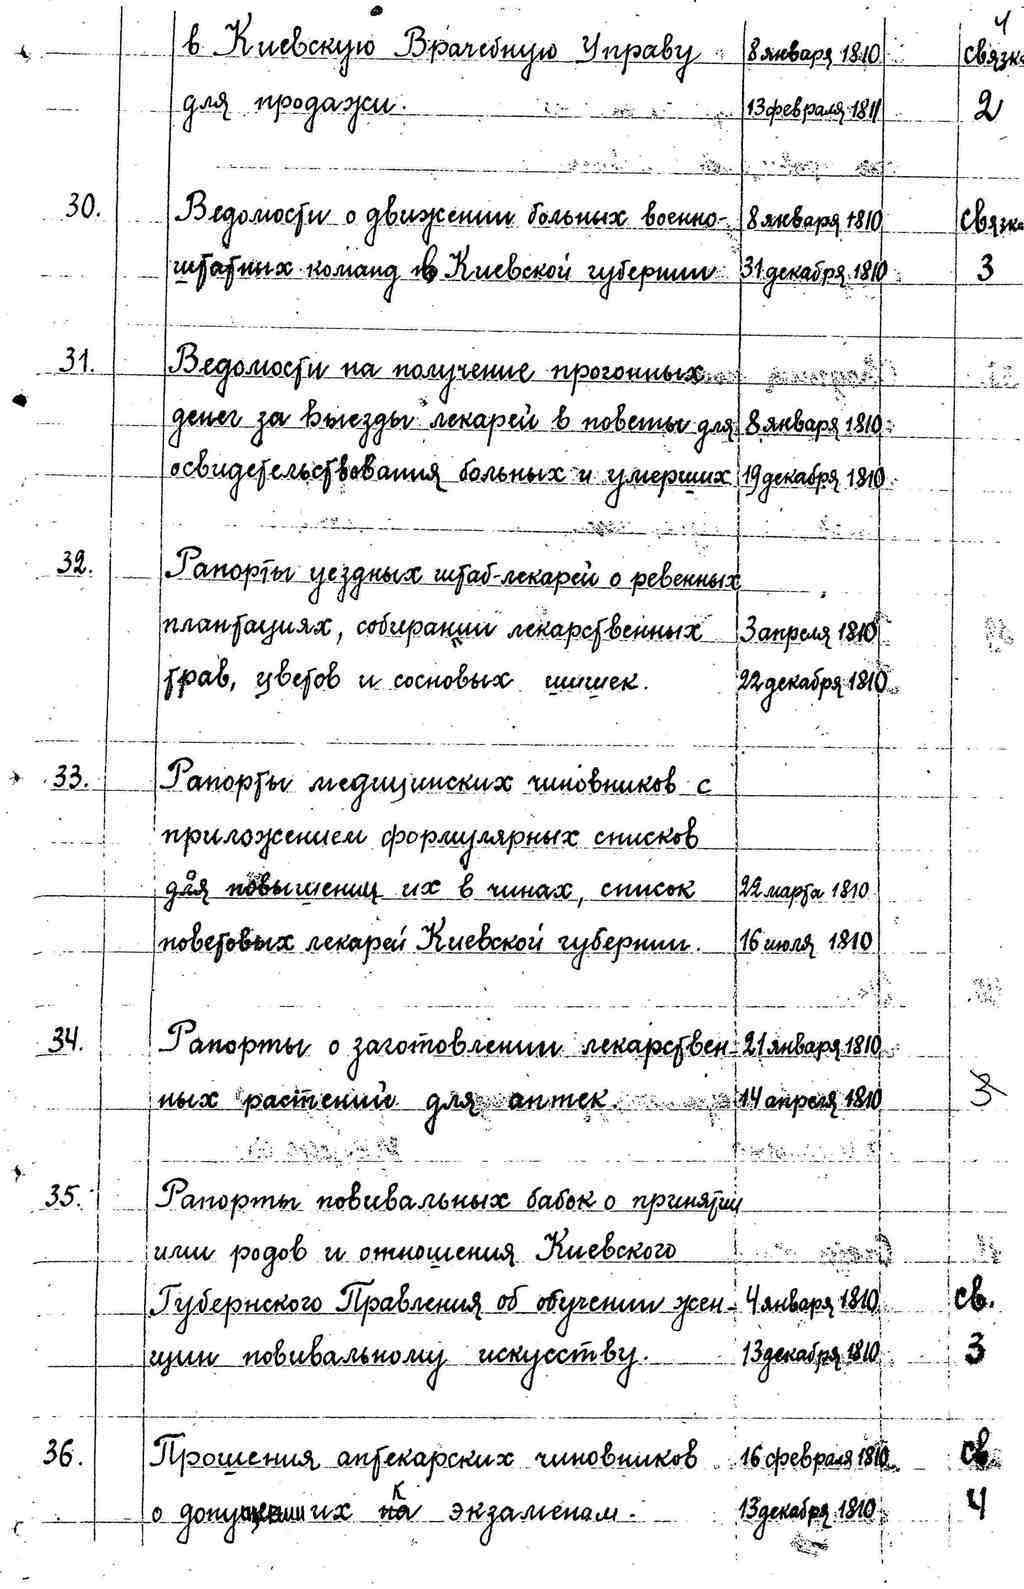 4
в Киевскую Врачебную Управу 8 января 1810 связка
для продажи. 13 февраля 1811 2
30. Ведомости о движении больных военно- 8 января 1810 связка
штатных команд в Киевской губернии 31 декабря 1810 3
31. Ведомости на получение прогонных
денег за выезды лекарей в поветы для 8 января 1810
освидетельствования больных и умерших 19 декабря 1810
32. Рапорты уездных штаб-лекарей о ревенных
плантациях, собирании лекарственных 3 апреля 1810
трав, цветов и сосновых шишек. 22 декабря 1810
33. Рапорты медицинских чиновников с
приложением формулярных списков
для повышения их в чинах, список 22 марта 1810
поветовых лекарей Киевской губернии. 16 июля 1810
34. Рапорты о заготовлении лекарствен- 21 января 1810
ных растений для аптек. 14 апреля 1810 3
35. Рапорты повивальных бабок о принятии
ими родов и отношения Киевского
Губернского Правления об обучении жен- 4 января 1810 св.
щин повивальному искусству. 13 декабря 1810 3
36. Прошения аптекарских чиновников 16 февраля 1810 св.
о допущении их к экзаменам. 13 декабря 1810 4